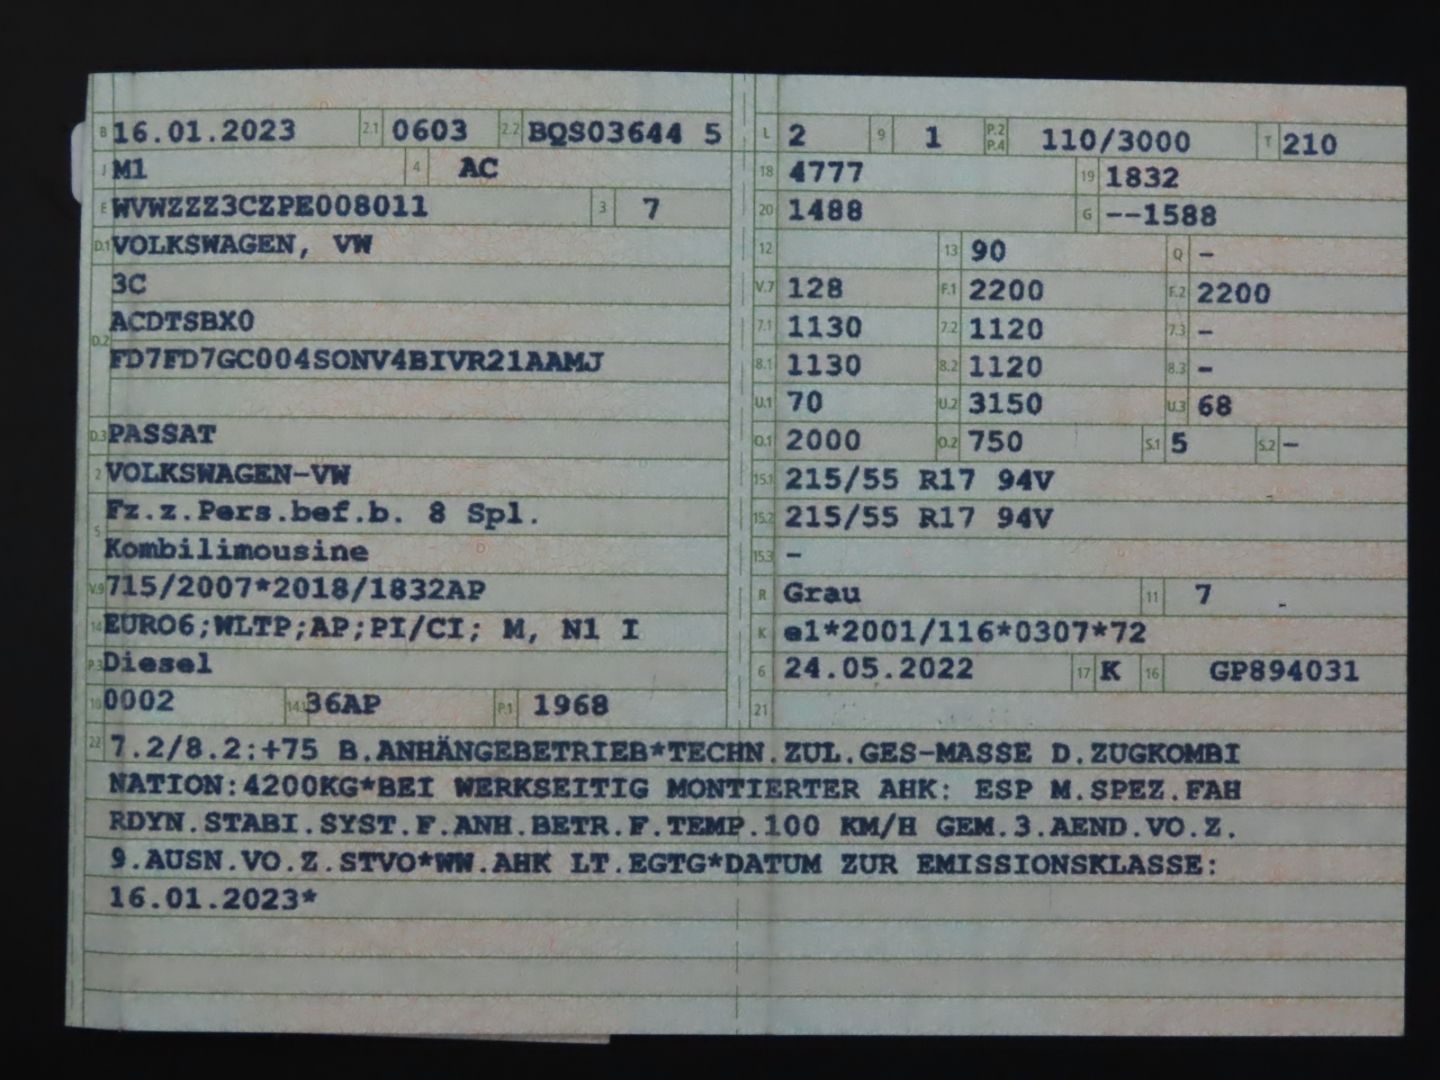 B 16.01.2023 2.1 0603 2.2 BQS03644 5
J M1 4 AC
E WVWZZZ3CZPE008011 3 7
D.1 VOLKSWAGEN, VW
3C
D.2 ACDTSBX0
FD7FD7GC004SONV4BIVR21AAMJ
D.3 PASSAT
2 VOLKSWAGEN-VW
5 Fz.z.Pers.bef.b. 8 Spl.
Kombilimousine
V.9 715/2007*2018/1832AP
14 EURO6;WLTP;AP;PI/CI; M, N1 I
P.3 Diesel
10 0002 14.1 36AP P.1 1968
L 2 9 1 P.2 P.4 110/3000 T 210
18 4777 19 1832
20 1488 G --1588
12 13 90 Q -
V.7 128 F.1 2200 F.2 2200
7.1 1130 7.2 1120 7.3 -
8.1 1130 8.2 1120 8.3 -
U.1 70 U.2 3150 U.3 68
O.1 2000 O.2 750 S.1 5 S.2 -
15.1 215/55 R17 94V
15.2 215/55 R17 94V
15.3 -
R Grau 11 7 -
K e1*2001/116*0307*72
6 24.05.2022 17 K 16 GP894031
21
22 7.2/8.2:+75 B.ANHÄNGEBETRIEB*TECHN.ZUL.GES-MASSE D.ZUGKOMBI
NATION:4200KG*BEI WERKSEITIG MONTIERTER AHK: ESP M.SPEZ.FAH
RDYN.STABI.SYST.F.ANH.BETR.F.TEMP.100 KM/H GEM.3.AEND.VO.Z.
9.AUSN.VO.Z.STVO*WW.AHK LT.EGTG*DATUM ZUR EMISSIONSKLASSE:
16.01.2023*